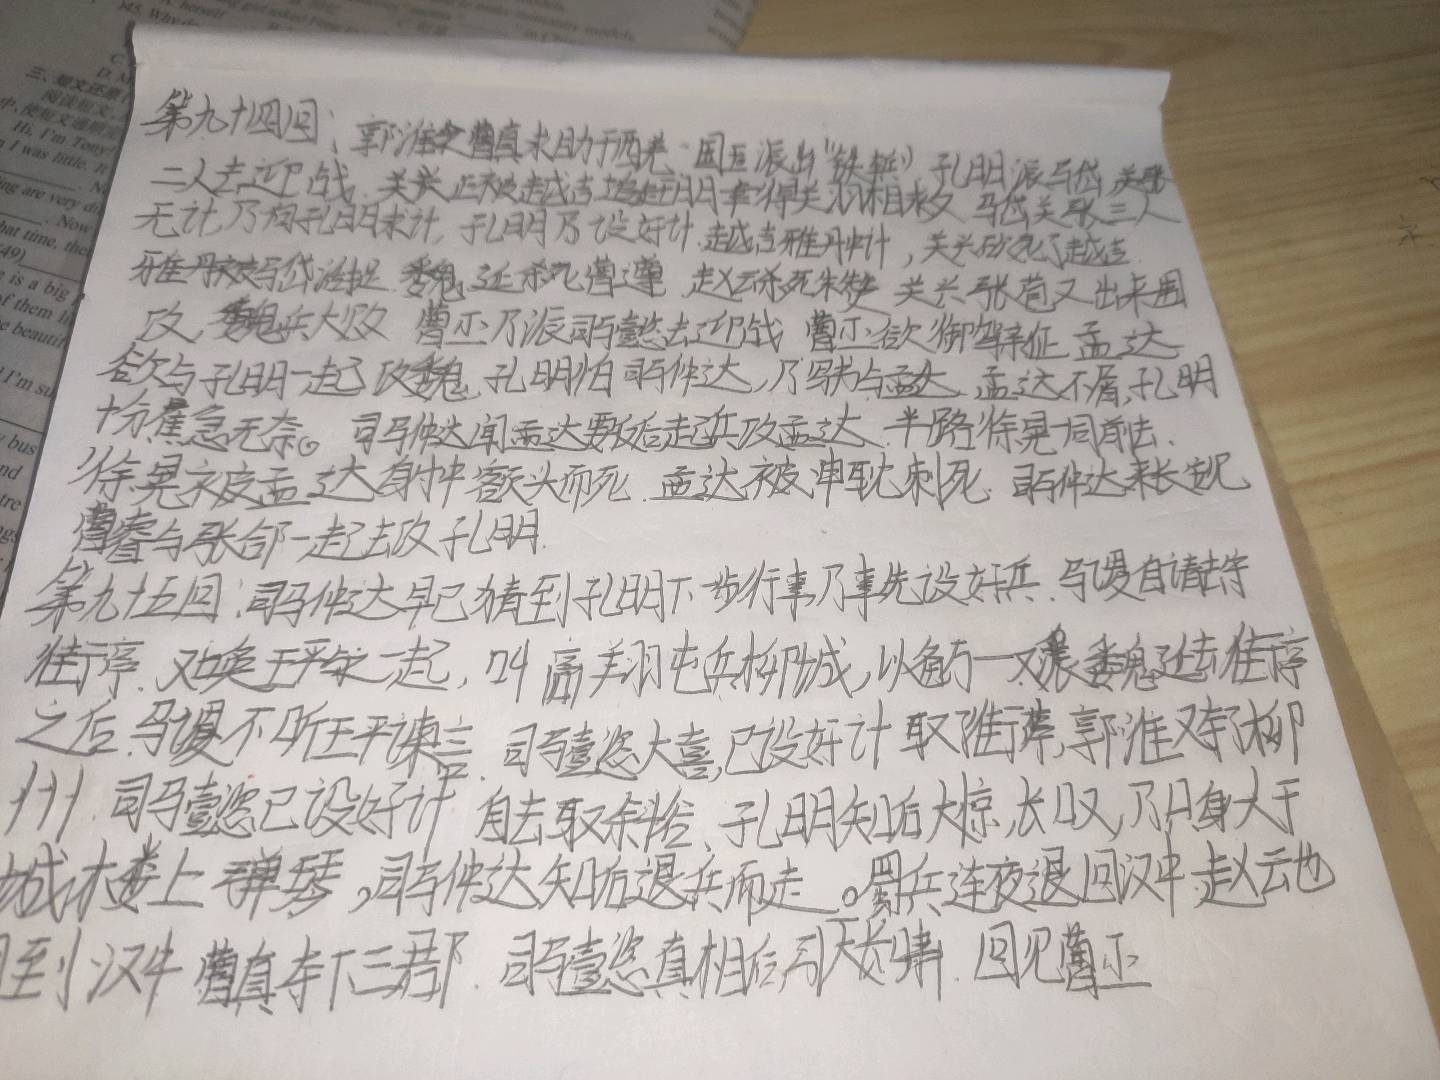 345. Why
A. herself
C
D. M
三、短文还原(
阅读短文,
中,使短文通顺完
Hi, I'm Tony!
n I was little. It
ing are very di
. Now
that time, the
49)
e is a big
of them li
e beautif
I'm su
y bus
nd
tre
ngs
to make miniature models.
第九十四回: 郭淮 曹真求助于西羌 国王派出“铁 ” 孔明派马岱 关张
二人去迎战 关兴正被越吉追赶 关 相救 马岱关张三人
无计,乃向孔明求计,孔明乃设好计.越吉雅丹中计,关兴砍死了越吉
雅丹被马岱活捉 魏延杀死曹遵 赵云杀死朱赞 关兴张苞又出来围
攻,魏兵大败 曹丕乃派司马懿去迎战 曹丕欲御驾亲征 孟达
欲与孔明一起攻魏,孔明怕司马仲达,乃写书与孟达 孟达不屑,孔明
十分焦急无奈。司马仲达闻孟达要反后起兵攻孟达 半路徐晃一同前去、
徐晃被孟达射中额头而死.孟达被申耽刺死 司马仲达来长安见
曹睿与张郃一起去攻孔明.
第九十五回:司马仲达早已猜到孔明下一步行事乃事先设好兵.马谡自请去守
街亭.又唤王平与之一起,叫高羊羽屯兵柳城,以备万一又派魏延去街亭
之后.马谡不听王平谏言.司马懿大喜,已设好计取街亭,郭淮又夺柳
州.司马懿已设好计 自去取余 、孔明知后大惊,长叹,乃只身大于
城木楼上弹琴,司马仲达知后退兵而走。蜀兵连夜退回汉中,赵云也
回到汉中 曹真夺下三郡.司马懿 真相后 天长啸.回见曹丕